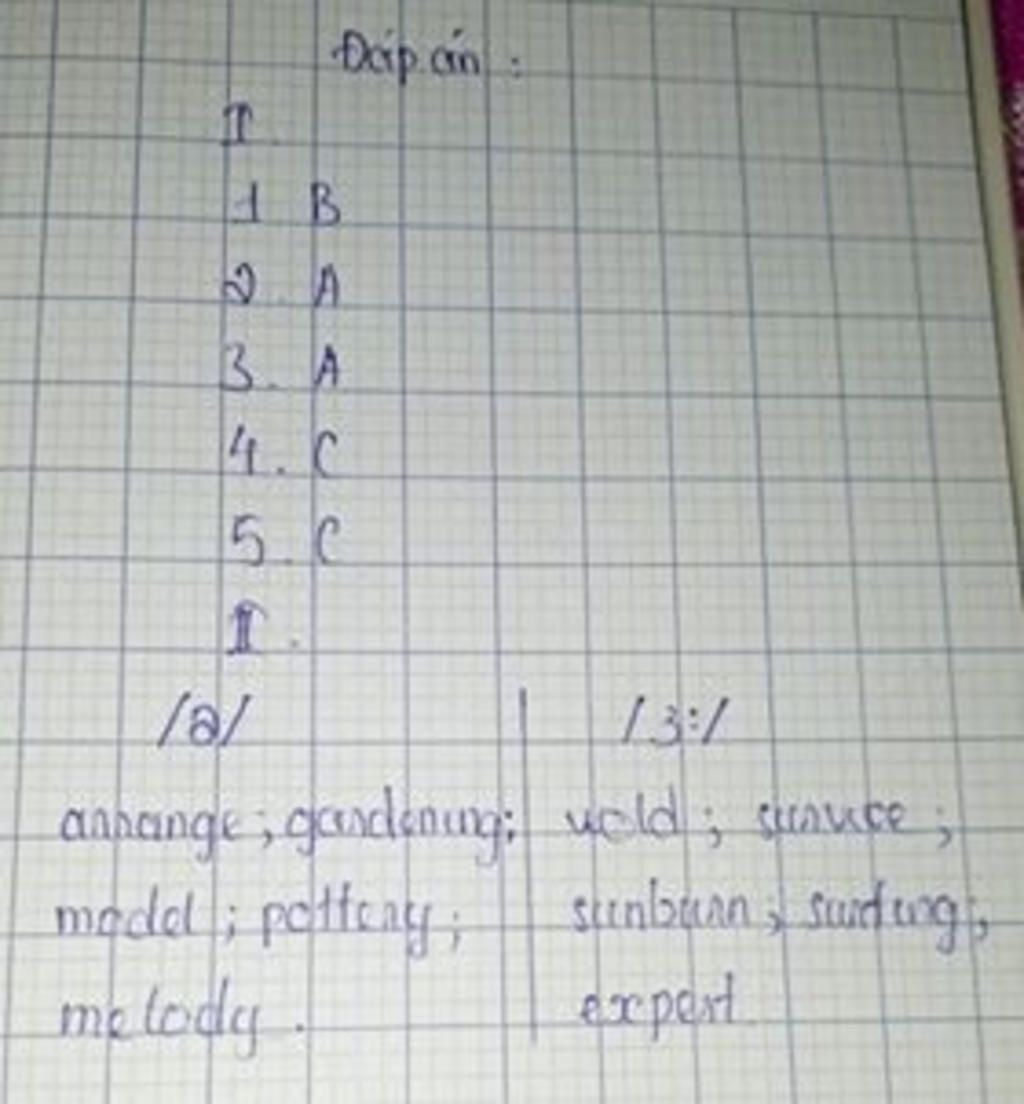 Đáp án :
I.
1 B
2. A
3. A
4. C
5. C
II.
/ə/ | /3:/
arrange ; gardening ; | wold ; survice ;
model ; pottery ; | sunburn ; surfing ;
melody . | expert